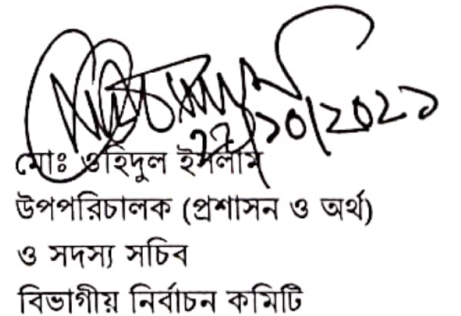 ২৭/১০/২০২১
মোঃ ওহিদুল ইসলাম
উপপরিচালক (প্রশাসন ও অর্থ)
ও সদস্য সচিব
বিভাগীয় নির্বাচন কমিটি